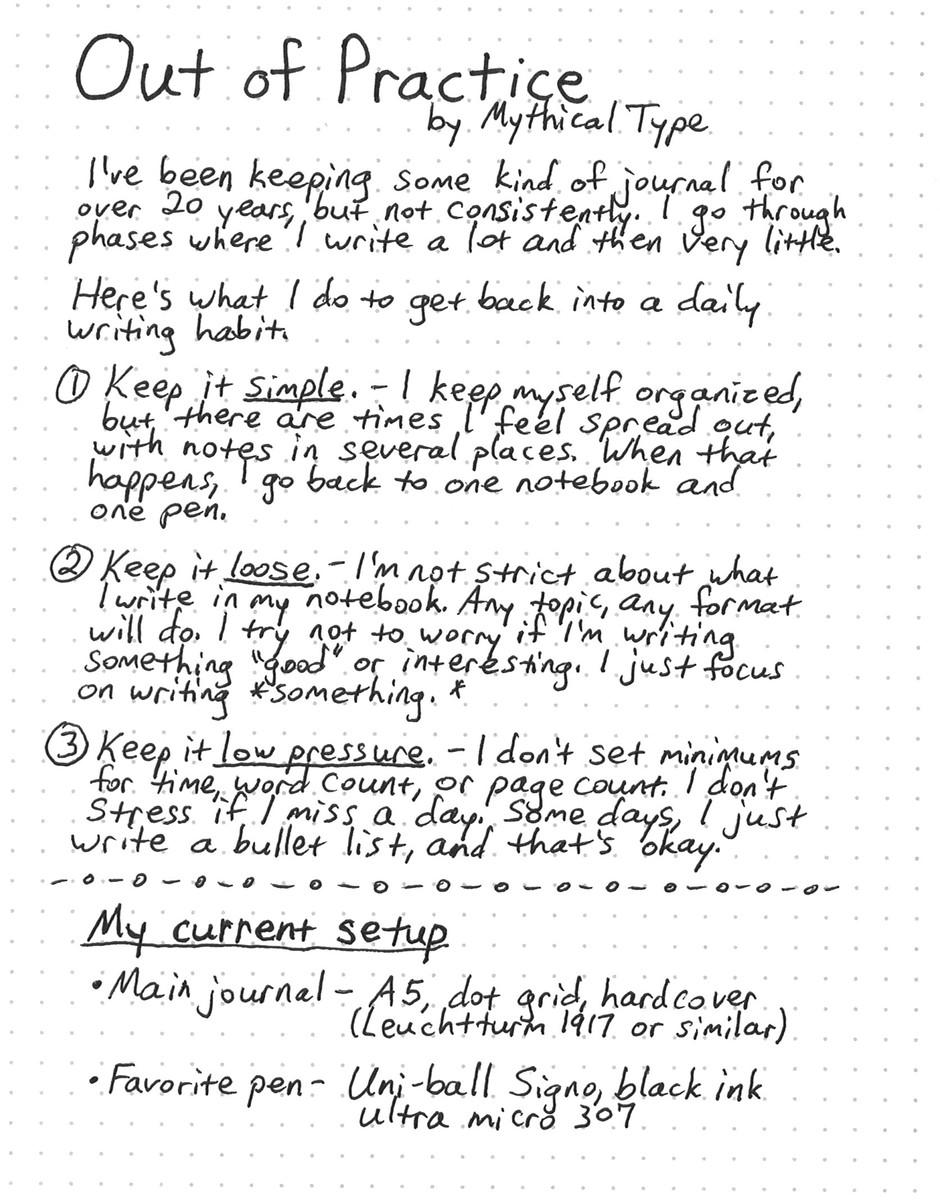 Out of Practice
by Mythical Type
I've been keeping some kind of journal for
over 20 years, but not consistently. I go through
phases where I write a lot and then very little.
Here's what I do to get back into a daily
writing habit.
① Keep it simple. - I keep myself organized,
but there are times I feel spread out,
with notes in several places. When that
happens, I go back to one notebook and
one pen.
② Keep it loose. - I'm not strict about what
I write in my notebook. Any topic, any format
will do. I try not to worry if I'm writing
something "good" or interesting. I just focus
on writing *something.*
③ Keep it low pressure. - I don't set minimums
for time, word count, or page count. I don't
stress if I miss a day. Some days, I just
write a bullet list, and that's okay.
My current setup
• Main journal - A5, dot grid, hardcover
(Leuchtturm 1917 or similar)
• Favorite pen - Uni-ball Signo, black ink
ultra micro 307